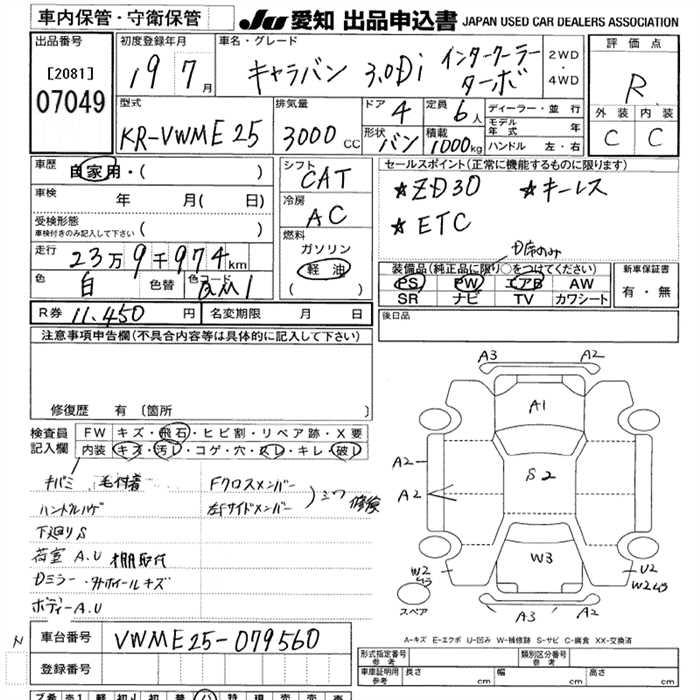 車内保管・守衛保管
JU 愛知 出品申込書 JAPAN USED CAR DEALERS ASSOCIATION
出品番号
[2081]
07049
初度登録年月
19 7 月
車名・グレード
キャラバン 3.0Di インタークーラー
ターボ
2WD
・
4WD
評価点
R
外装 内装
C C
型式
KR-VWME25
排気量
3000 CC
ドア 4
形状 バン
定員 6 人
積載 1000kg
ディーラー・並行
モデル
年式 年
ハンドル 左・右
車歴
自家用・( )
車検 年 月( 日)
受検形態
車検付きのみ記入して下さい ( )
走行 23万9千974km
色 白 色替 色コード
シフト CAT
冷房 AC
燃料
ガソリン
軽油
( )
セールスポイント(正常に機能するものに限ります)
★ZD30 ★キーレス
★ETC
D席のみ
装備品(純正品に限り○をつけてください)
PS PW エアB AW
SR ナビ TV カワシート
新車保証書
有・無
R券 11,450 円 名変期限 月 日
後日品
注意事項申告欄(不具合内容等は具体的に記入して下さい)
修復歴 有 〔箇所 〕
検査員
記入欄
FW キズ・飛石・ヒビ割・リペア跡・X要
内装 キズ・汚し・コゲ・穴・スレ・キレ・破レ
キバミ 毛付着
ハンドルハゲ
下廻りS
荷室 A.U 棚取付
Dミラー・外ホイールキズ
ボディーA.U
Fクロスメンバー
左Fサイドメンバー
シワ 修検
A3 A2
A1
A2
A2
S2
W3
W2
U2
A3 A2
スペア
A-キズ E-エクボ U-凹み W-補修跡 S-サビ C-腐食 XX-交換済
N
車台番号 VWME25-079560
登録番号
形式指定番号
参考
類別区分番号
参考
車庫証明用
参考
長さ cm 幅 cm 高さ cm